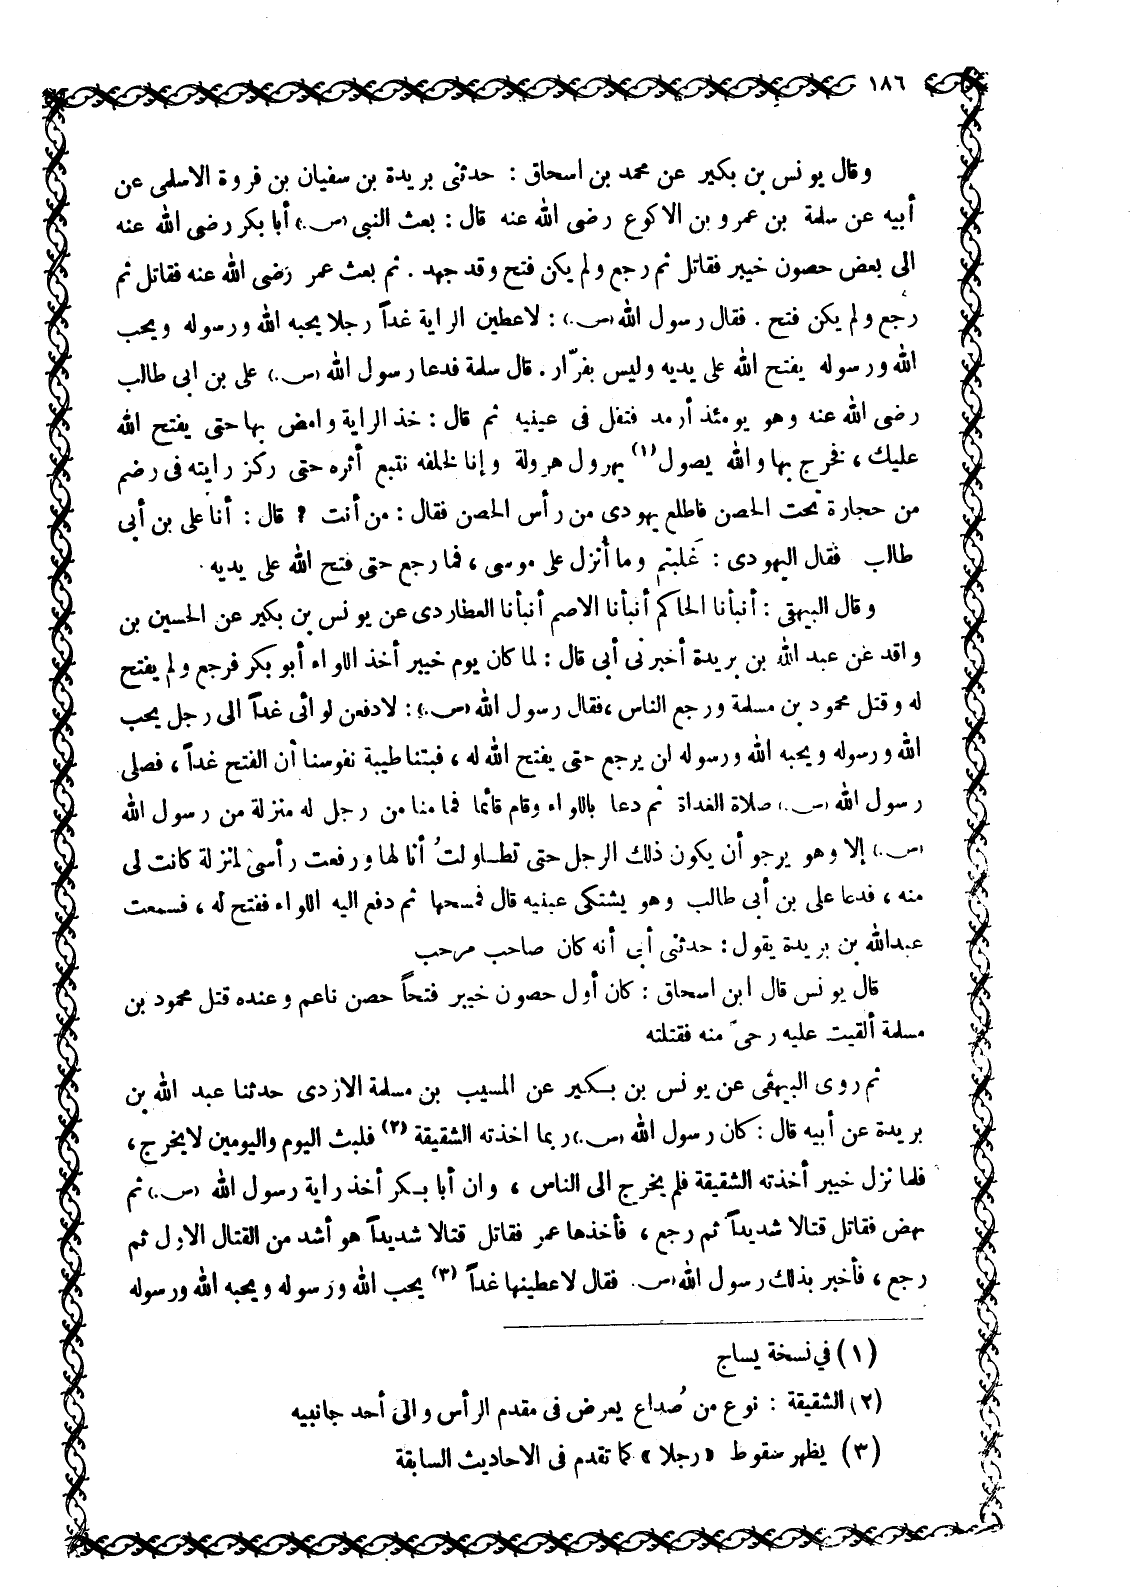 ١٨٦
وقال يونس بن بكير عن محمد بن اسحاق : حدثنى بريدة بن سفيان بن فروة الاسلمى عن
أبيه عن سلمة بن عمرو بن الاكوع رضى الله عنه قال : بعث النبى (س.) أبا بكر رضى الله عنه
الى بعض حصون خيبر فقاتل ثم رجع ولم يكن فتح وقد جهد . ثم بعث عمر رضى الله عنه فقاتل ثم
رجع ولم يكن فتح . فقال رسول الله (س.) : لاعطين الراية غداً رجلا يحبه الله ورسوله ويحب
الله ورسوله يفتح الله على يديه وليس بفرّار . قال سلمة فدعا رسول الله (س.) على بن ابى طالب
رضى الله عنه وهو يومئذ أرمد فتفل فى عينيه ثم قال : خذ الراية وامض بها حتى يفتح الله
عليك ، فخرج بها والله يصول (١) يهرول هرولة وإنا لخلفه نتبع أثره حتى ركز رايته فى رضم
من حجارة تحت الحصن فاطلع يهودى من رأس الحصن فقال : من أنت ? قال : أنا على بن أبى
طالب فقال اليهودى : غَلبتم وما أُنزل على موسى ، فما رجع حتى فتح الله على يديه .
وقال البيهقى : أنبأنا الحاكم أنبأنا الاصم أنبأنا العطاردى عن يونس بن بكير عن الحسين بن
واقد عن عبد الله بن بريدة أخبرنى أبى قال : لما كان يوم خيبر أخذ اللواء أبو بكر فرجع ولم يفتح
له وقتل محمود بن مسلمة ورجع الناس ، فقال رسول الله (س.) : لادفعن لوائى غداً الى رجل يحب
الله ورسوله ويحبه الله ورسوله لن يرجع حتى يفتح الله له ، فبتنا طيبة نفوسنا أن الفتح غداً ، فصلى
رسول الله (س.) صلاة الغداة ثم دعا باللواء وقام قائما فما منا من رجل له منزلة من رسول الله
(س.) إلا وهو يرجو أن يكون ذلك الرجل حتى تطاولتُ أنا لها ورفعت رأسى لمنزلة كانت لى
منه ، فدعا على بن أبى طالب وهو يشتكى عينيه قال فمسحها ثم دفع اليه اللواء ففتح له ، فسمعت
عبدالله بن بريدة يقول : حدثنى أبى أنه كان صاحب مرحب
قال يونس قال ابن اسحاق : كان أول حصون خيبر فتحاً حصن ناعم وعنده قتل محمود بن
مسلمة ألقيت عليه رحىً منه فقتلته
ثم روى البيهقى عن يونس بن بكير عن المسيب بن مسلمة الازدى حدثنا عبد الله بن
بريدة عن أبيه قال : كان رسول الله (س.) ربما اخذته الشقيقة (٢) فلبث اليوم واليومين لايخرج ،
فلما نزل خيبر أخذته الشقيقة فلم يخرج الى الناس ، وان أبا بكر أخذ راية رسول الله (س.) ثم
نهض فقاتل قتالا شديداً ثم رجع ، فأخذها عمر فقاتل قتالا شديداً هو أشد من القتال الاول ثم
رجع ، فأخبر بذلك رسول الله (س. فقال لاعطينها غداً (٣) يحب الله ورسوله ويحبه الله ورسوله
(١) في نسخة يساج
(٢) الشقيقة : نوع من صُداع يعرض فى مقدم الرأس والى أحد جانبيه
(٣) يظهر سقوط «رجلا» كما تقدم فى الاحاديث السابقة